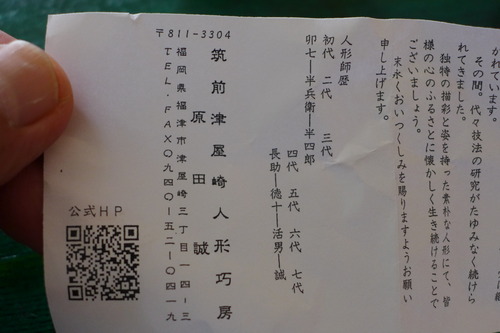 われています。
その間。代々技法の研究がたゆみなく続けら
れてきました。
独特の描彩と姿を持った素朴な人形にて、皆
様の心のふるさとに懐かしく生き続けることで
ございましょう。
末永くおいつくしみを賜りますようお願い
申し上げます。
人形師歴
初代 二代 三代
卯七―半兵衛―半四郎
四代 五代 六代 七代
長助―徳十―活男―誠
筑前津屋崎人形巧房
原田 誠
〒811-3304
福岡県福津市津屋崎三丁目一四―三
TEL・FAX〇九四〇―五二―〇四一九
公式HP